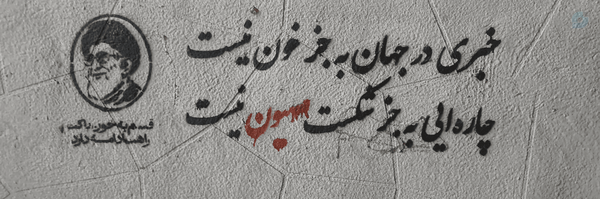 خبری در جهان به جز خون نیست
چاره ایی به جز شکست نیست
قسم به خون پاکت
راهت ادامه دارد